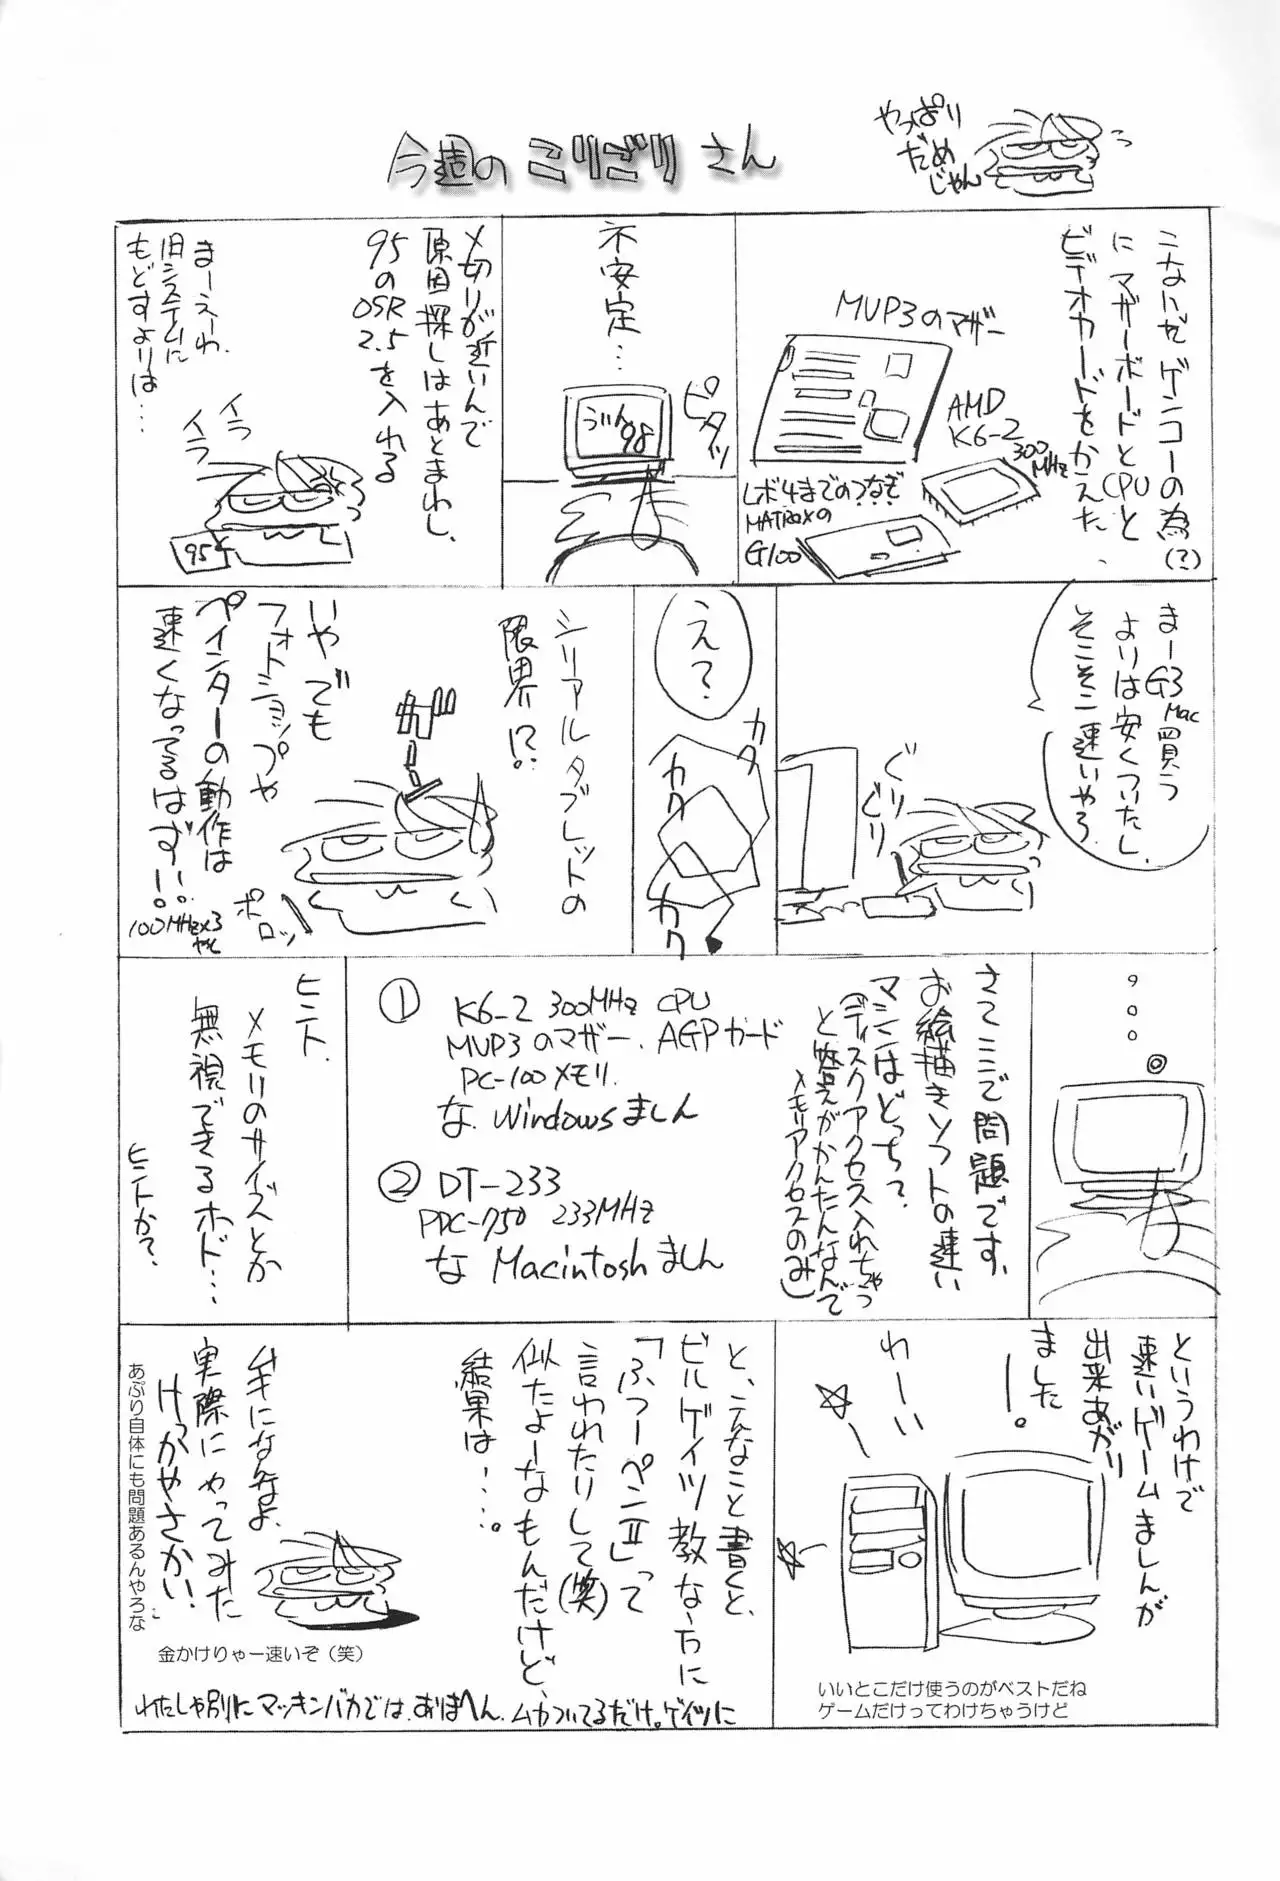 今週のこりごりさん
やっぱり
だめ
じゃん
こないだゲンコーの為(?)
にマザーボードとCPUと
ビデオカードをかえた.
MVP3のマザー
AMD
K6-2
300
MHz
レボ4までのつなぎ
MATROXの
G100
不安定…
うぃん
98
ピタッ
〆切りが近いんで
原因探しはあとまわし、
95の
OSR
2.5を入れる
まーえーわ、
旧システムに
もどすよりは…
イラ
イラ
95
まーG3
Mac買う
よりは安くついたし、
そこそこ速いやろ.
ぐり
ぐり
え?
カク
カク
カク
シリアルタブレットの
限界!?
ガーン
いやでも
フォトショップや
ペインターの動作は
速くなってるはず…!
100MHz×3
やし
ポロッ
。。。
さてここで問題です、
お絵描きソフトの速い
マシンはどっち?
(ディスクアクセス入れちゃう
と答えがかんたんなんで
メモリアクセスのみ)
① K6-2 300MHz CPU
MVP3のマザー、AGPカード
PC-100メモリ.
な Windowsましん
② DT-233
PPC-750 233MHz
な Macintoshましん
ヒント.
メモリのサイズとか
無視できるホド…
ヒントか?
というわけで
速いゲームましんが
出来あがり
ました
ー!。
わーい
いいとこだけ使うのがベストだね
ゲームだけってわけちゃうけど
と、こんなこと書くと、
ビルゲイツ教な方に
「ふつーペンⅡ」って
言われたりして(笑)
似たよーなもんだけど、
結果は…。
ムキになんなよ
実際にやってみた
けっかやさかい!
あぷり自体にも問題あるんやろな
金かけりゃー速いぞ（笑）
わたしゃ別にマッキンバカでは、おまへん、ムカついてるだけ。ゲイツに